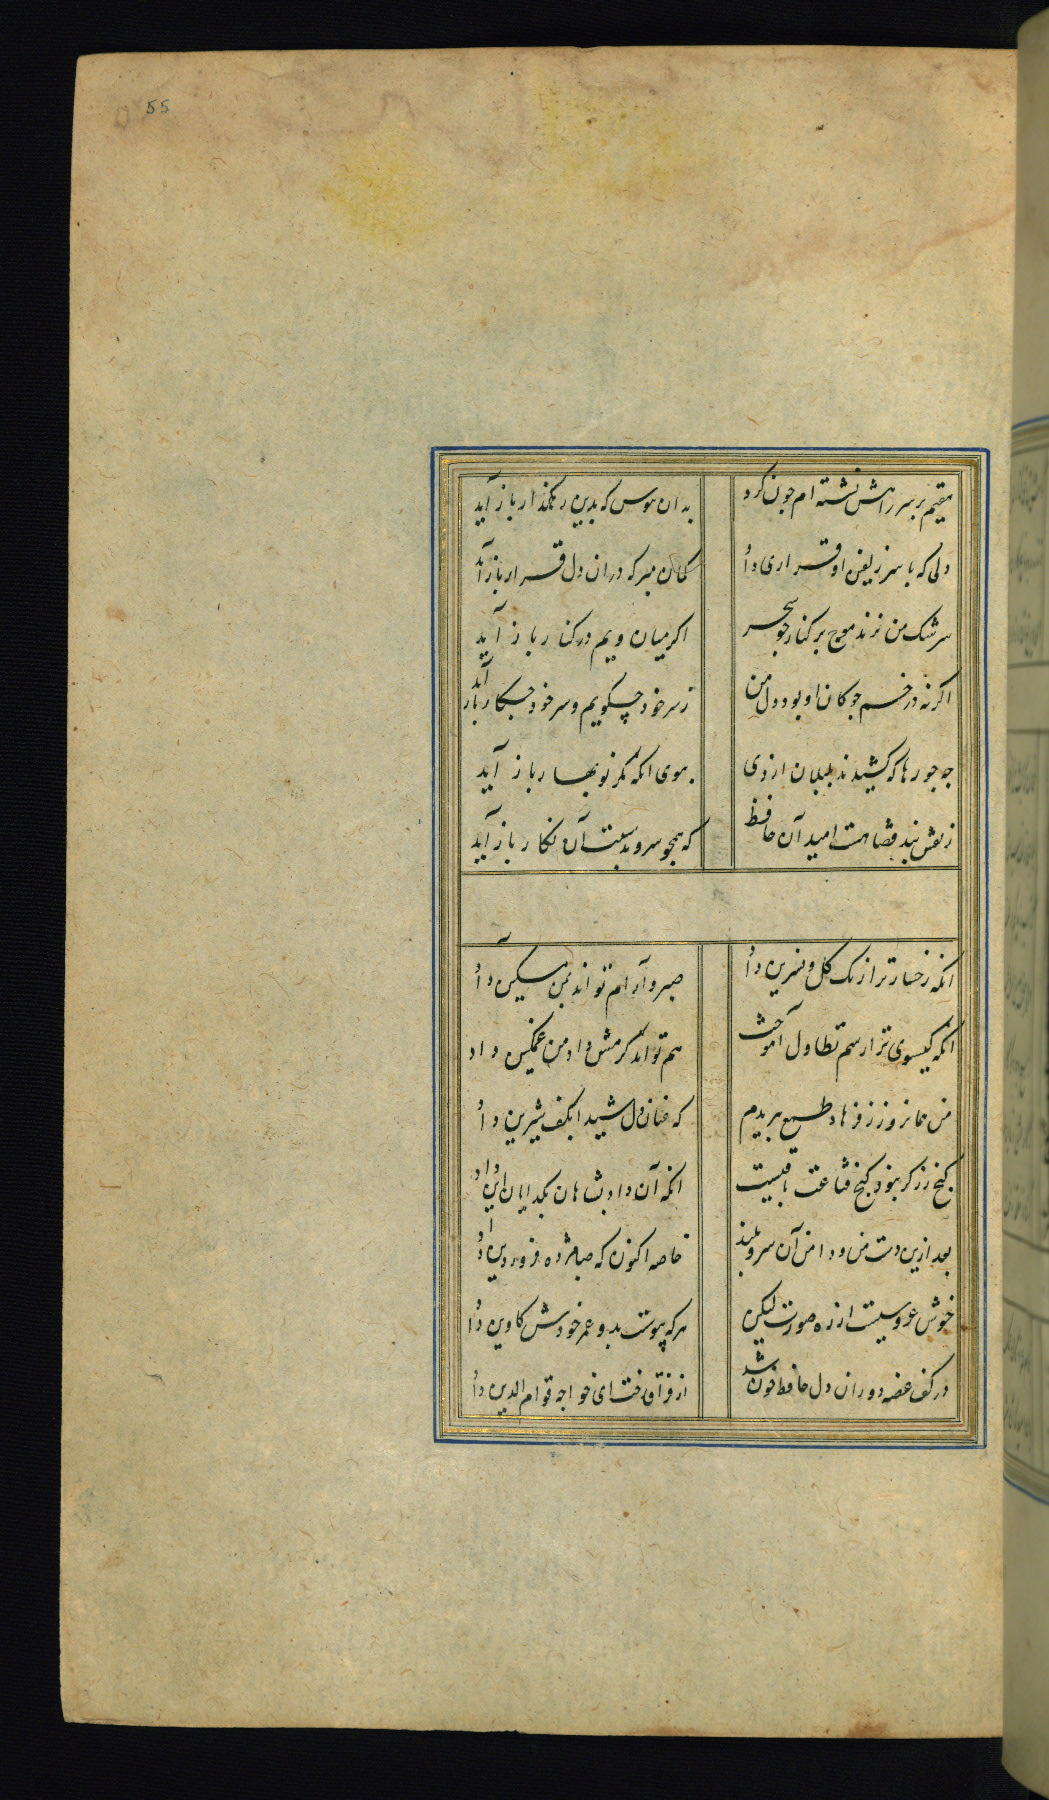 55
مقیم بر سر راهش نشسته ام جون کرد
بدان هوس که بدین رهکذار باز آید
دلی که با سر زلفین او قراری داد
کمان مبر که در ان دل قرار باز آید
سرشک من نزند موج بر کنار جو بحر
اکر میان ویم در کنار باز آید
اکر نه در خم جوکان او بود دل من
ز سر خود چکویم و سر خود جکار باز آید
جه جورها که کشیدند بلبلان از دی
ببوی انکه مکر نوبهار باز آید
ز نقش بند قضا هست امید آن حافظ
که همجو سرو بدستت آن نکار باز آید
انکه رخسار ترا رنک کل و نسرین داد
صبر و آرام تواند بمن مسکین داد
انکه کیسوی ترا رسم تطاول آموخت
هم تواند کرمش داد من غمکین داد
من همانروز ز فرهاد طمع ببریدم
که عنان دل شیدا بکف شیرین داد
کنج زر کر نبود کنج قناعت باقیست
انکه آن داد بشاهان بکدایان این داد
بعد ازین دست من و دامن آن سرو بلند
خاصه اکنون که صبا مژده فروردین داد
خوش عروسیست از ره صورت لیکن
هر که پیوست بدو عمر خودش کاوین داد
در کف غصه دوران دل حافظ خون شد
از فراق رخت ای خواجه قوام الدین داد